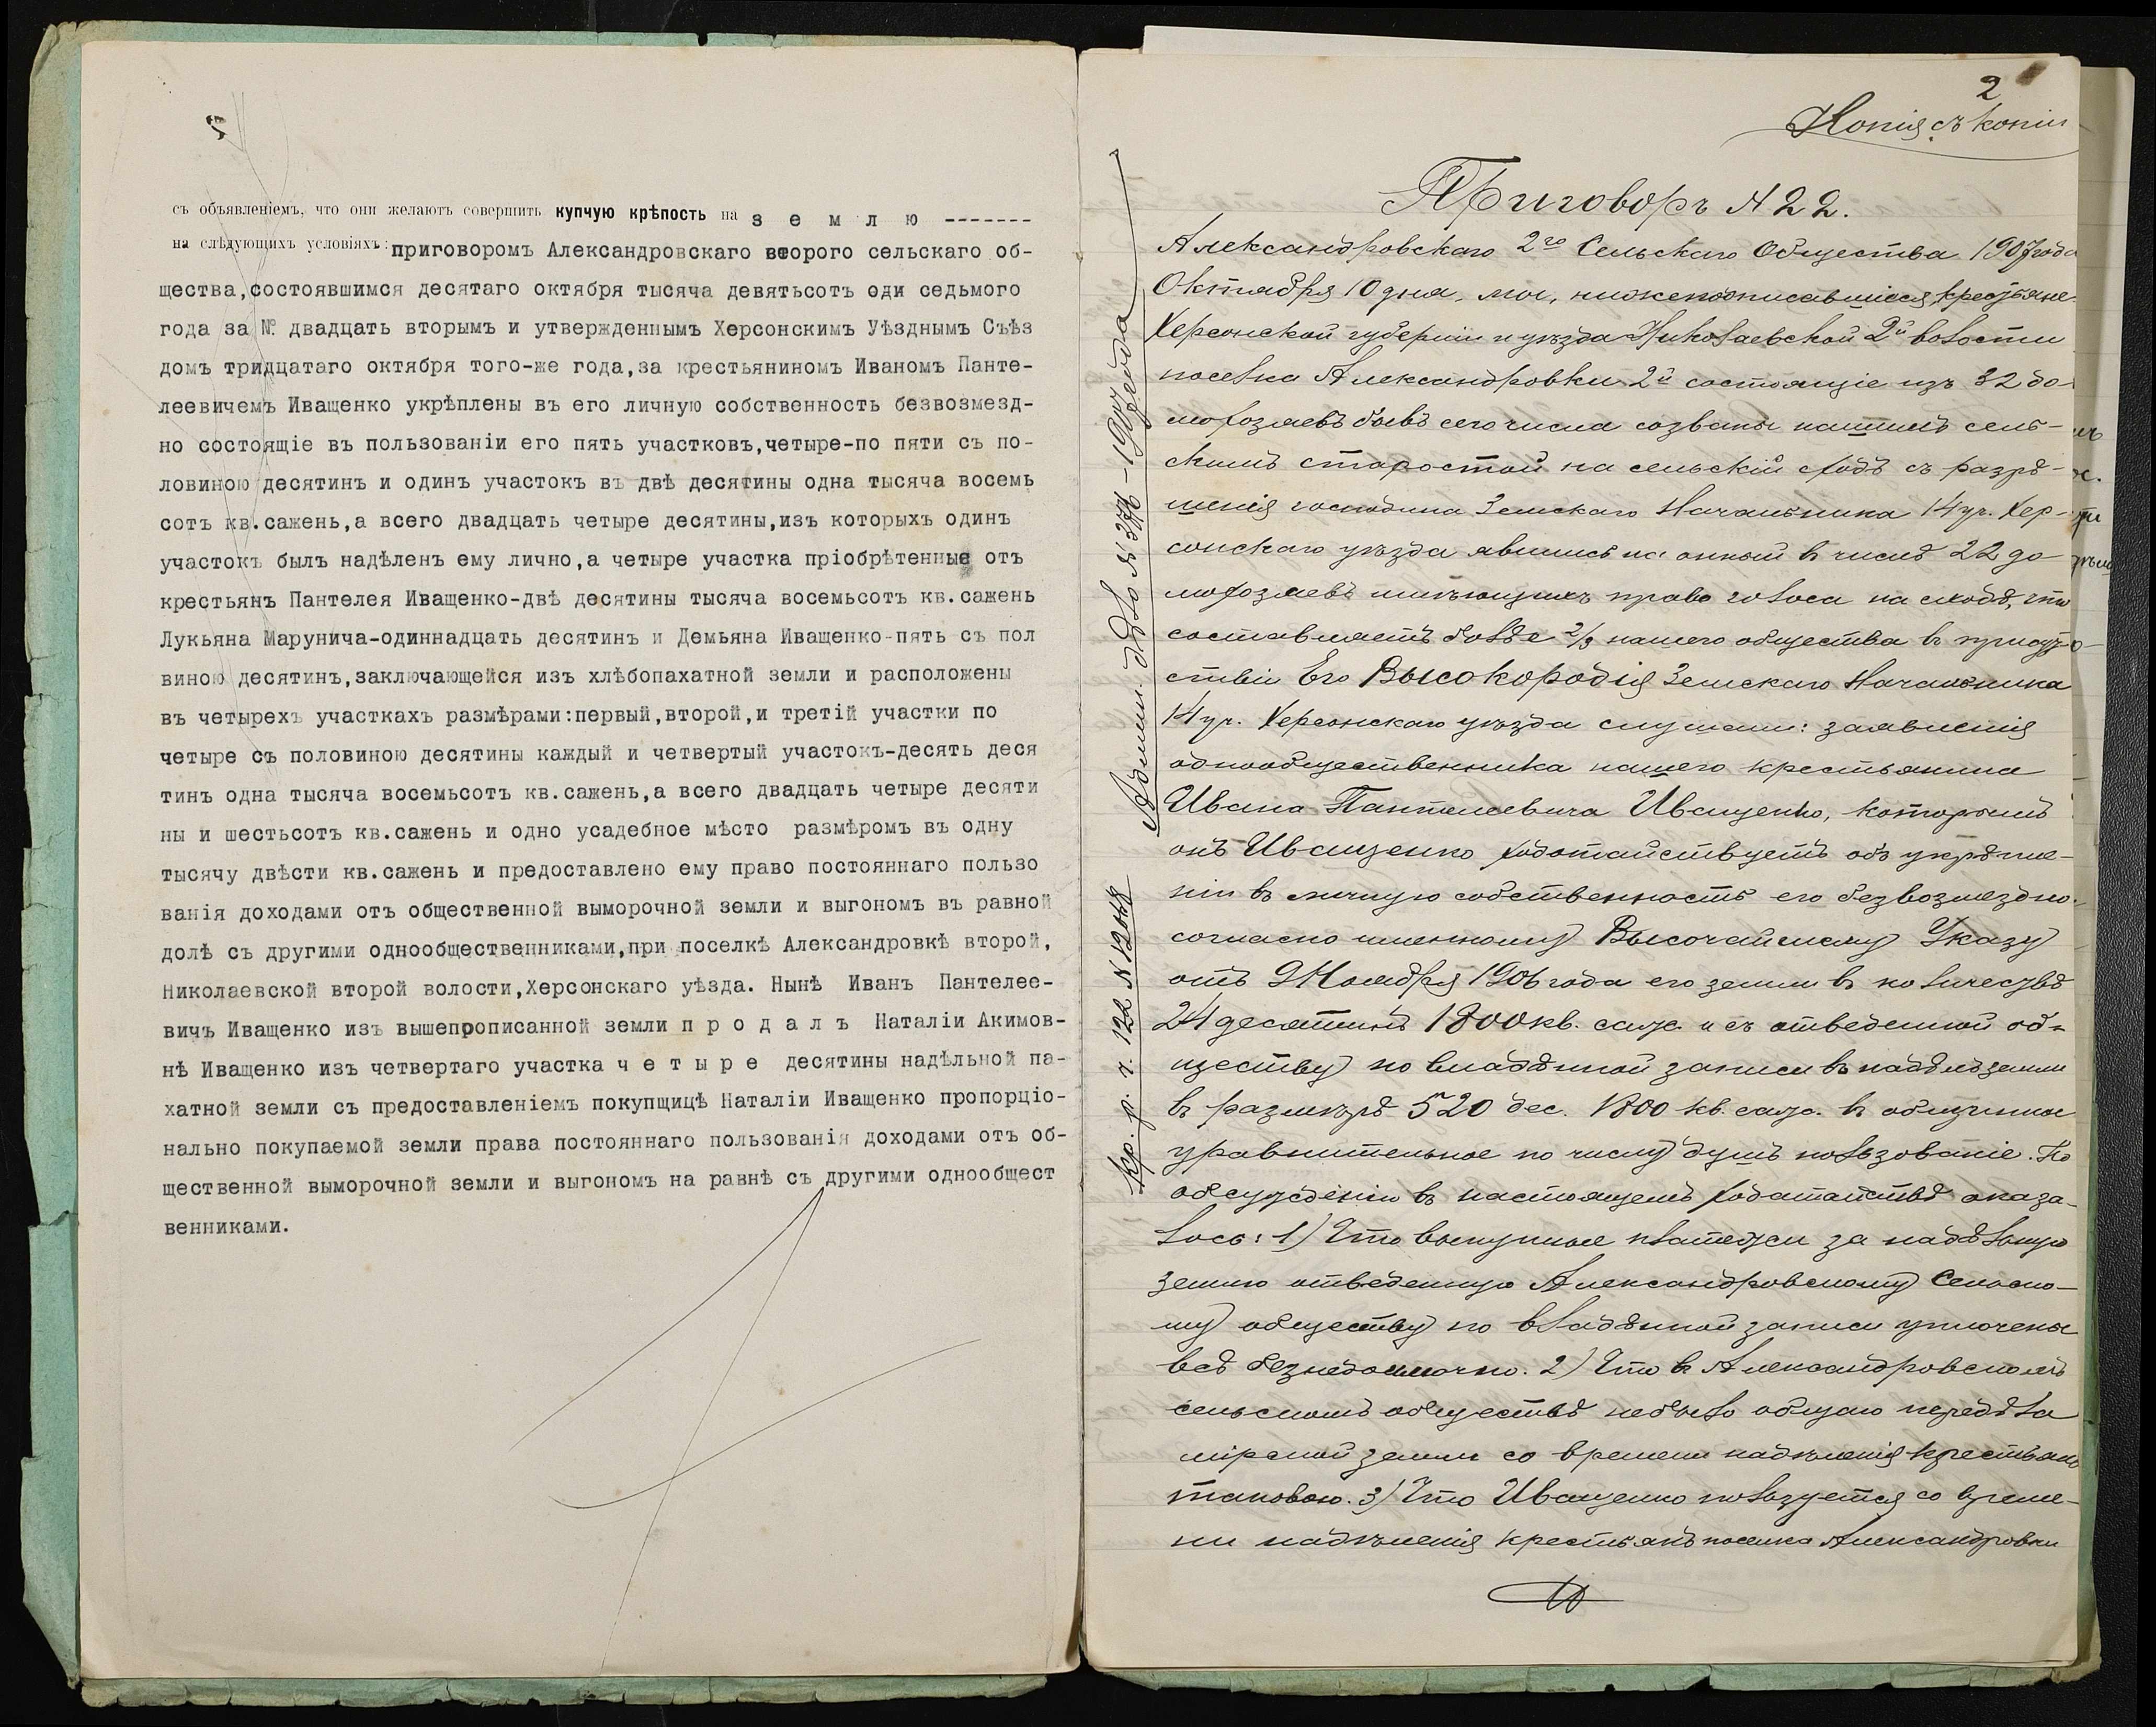 съ объявленіемъ, что они желаютъ совершить купчую крѣпость на з е м л ю -------
на слѣдующихъ условіяхъ: приговоромъ Александровскаго второго сельскаго об-
щества,состоявшимся десятаго октября тысяча девятьсотъ оди седьмого
года за № двадцать вторымъ и утвержденнымъ Херсонскимъ Уѣзднымъ Съѣз
домъ тридцатаго октября того-же года,за крестьяниномъ Иваномъ Панте-
леевичемъ Иващенко укрѣплены въ его личную собственность безвозмезд-
но состоящіе въ пользованіи его пять участковъ,четыре-по пяти съ по-
ловиною десятинъ и одинъ участокъ въ двѣ десятины одна тысяча восемь
сотъ кв.сажень,а всего двадцать четыре десятины,изъ которыхъ одинъ
участокъ былъ надѣленъ ему лично,а четыре участка пріобрѣтенные отъ
крестьянъ Пантелея Иващенко-двѣ десятины тысяча восемьсотъ кв.сажень
Лукьяна Марунича-одиннадцать десятинъ и Демьяна Иващенко-пять съ пол
виною десятинъ,заключающейся изъ хлѣбопахатной земли и расположены
въ четырехъ участкахъ размѣрами:первый,второй,и третій участки по
четыре съ половиною десятины каждый и четвертый участокъ-десять деся
тинъ одна тысяча восемьсотъ кв.сажень,а всего двадцать четыре десяти
ны и шестьсотъ кв.сажень и одно усадебное мѣсто размѣромъ въ одну
тысячу двѣсти кв.сажень и предоставлено ему право постояннаго пользо
ванія доходами отъ общественной выморочной земли и выгономъ въ равной
долѣ съ другими однообщественниками,при поселкѣ Александровкѣ второй,
Николаевской второй волости,Херсонскаго уѣзда. Нынѣ Иванъ Пантелее-
вичъ Иващенко изъ вышепрописанной земли п р о д а л ъ Наталіи Акимов-
нѣ Иващенко изъ четвертаго участка ч е т ы р е десятины надѣльной па-
хатной земли съ предоставленіемъ покупщицѣ Наталіи Иващенко пропорціо-
нально покупаемой земли права постояннаго пользованія доходами отъ об-
щественной выморочной земли и выгономъ на равнѣ съ другими однообщест
венниками.
2
Копія съ копіи
Приговоръ N 22.
Александровскаго 2го Сельскаго Общества 1907года
Октября 10 дня, мы, нижеподписавшіеся, крестьяне
Херсонской губерніи и уѣзда Николаевской 2й волости
поселка Александровки 2й состоящіе изъ 32 до-
мохозяевъ бывъ сего числа созваны нашимъ сель-
скимъ старостой на сельскій сходъ съ разрѣ-
шенія господина Земскаго Начальника 14 уч. Хер-
сонскаго уѣзда явились на оный в числѣ 22 до-
мохозяевъ имѣющихъ право голоса на сходѣ, что
составляетъ болѣе 2/3 нашего общества в присут-
ствіи Его Высокородія Земскаго Начальника
14 уч. Херсонскаго уѣзда слушали: заявленія
однообщественника нашего крестьянина
Ивана Пантелеевича Иващенко, которымъ
онъ Иващенко ходотайствуетъ объ укрѣпле-
ніи въ личную собственность его безвозмездно
согласно именному Высочайшему Указу
отъ 9 Ноября 1906 года его земли въ количествѣ
24 десятинъ 1800 кв. саж. и съ отведенной об-
ществу по владѣнной записи въ надѣлъ земли
въ размѣрѣ 520 дес. 1800 кв. саж. въ общинное
уравнительное по числу душъ пользованіе. По
обсужденіи въ настоящемъ ходатайствѣ оказа-
лось: 1) Что выкупные платежи за надѣльную
землю отведенную Александровскому Сельско-
му обществу по владѣнной записи уплочены
всѣ безнедоимочно. 2) Что въ Александровскомъ
сельскомъ обществѣ небыло общаго передѣла
мірской земли со времени надѣленія крестьянъ
таковою. 3) Что Иващенко пользуется со време-
ни надѣленія крестьянъ поселка Александровки